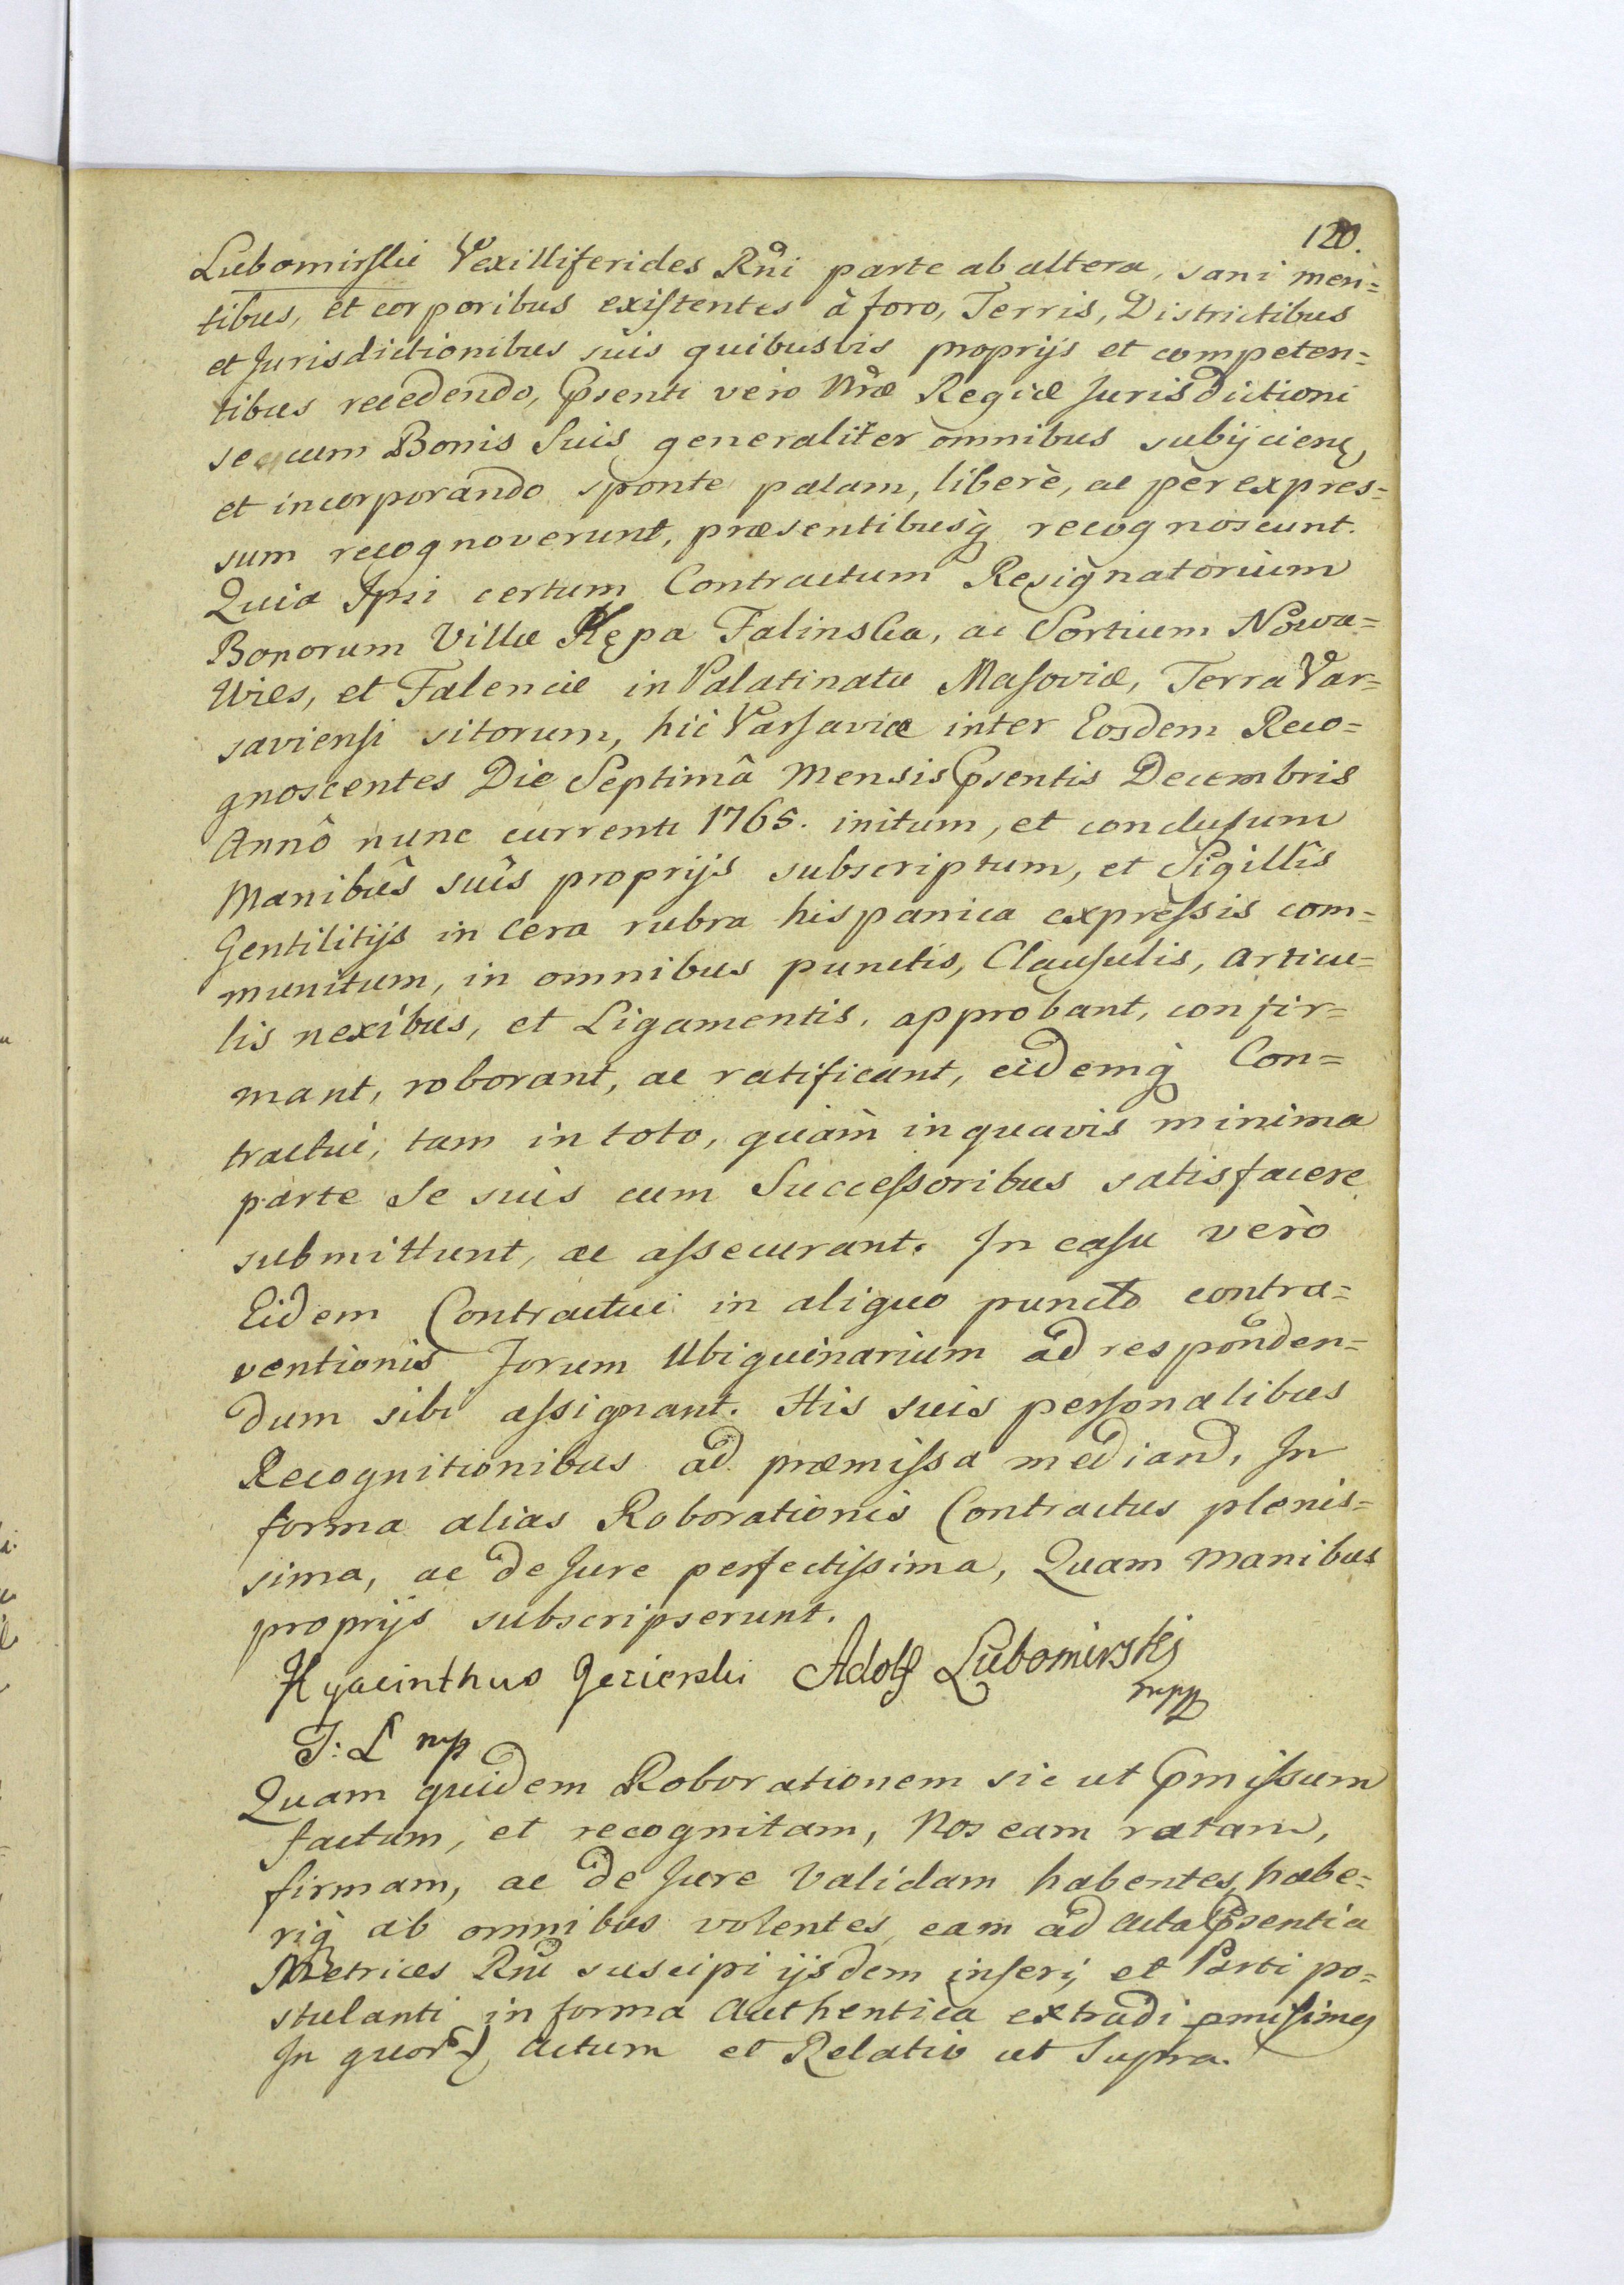 120.
Lubomirskie Vexilliferides Rñi parte ab altera, sani men=
tibus, et corporibus existentes à foro, Terris, Districtibus
et Jurisdictionibus suis quibusvis proprijs et competen=
tibus recedendo, Psenti vero Nræ Regiæ Jurisdictioni
se cum Bonis Suis generaliter omnibus subijcien
et incorporando sponte palam, liberè, ac pèr expres=
sum recognoverunt, præsentibusq̀ recognoscunt.
Quia Ipsi certum Contractum Resignatorium
Bonorum Villæ Kępa Falinska, ac Sortium Nowa=
Wies, et Falencie in Palatinatu Masoviæ, Terra Var=
saviensi sitorum, hic Varsaviæ inter Eosdem Reco=
gnoscentes Die Septimâ Mensis Psentis Decembris
Annô nunc currenti 1765. initum, et conclusum
Manibûs suîs proprijs subscriptum, et Sigillîs
Gentilitijs in Cera rubra hispanica expressis com=
munitum, in omnibus punctis, Clausulis, articu=
lis nexibus, et Ligamentis, approbant, confir=
mant, roborant, ac ratificant, eidemq̀ Con=
tractui, tam in toto, quàm in quavis minima
parte Se suis cum Successoribus satisfacere
submittunt, ac assecurant. In casu verò
Eidem Contractui in aliquo puncto contra=
ventionis Forum Ubiquinarium ad responden=
dum sibi assignant. His suis personalibus
Recognitionibus ad præmissa mediand, In
forma alias Roborationis Contractus plenis=
sima, ac de Jure perfectissima, Quam Manibus
proprijs subscripserunt.
Hyacinthus Jezierski Adolf Lubomirskj
mpp
J: L mp
Quam quidem Roborationem sic ut Pmissum
factam, et recognitam, Nos eam ratam,
firmam, ac de Jure Validam habentes, habe=
riq̀ ab omnibus volentes, eam ad Acta Psentia
Metrices Rni suscipi ijsdem inseri, et Parti po=
stulanti in forma Authentica extradi pmisimq
In quor) Actum et Relatio ut Supra.